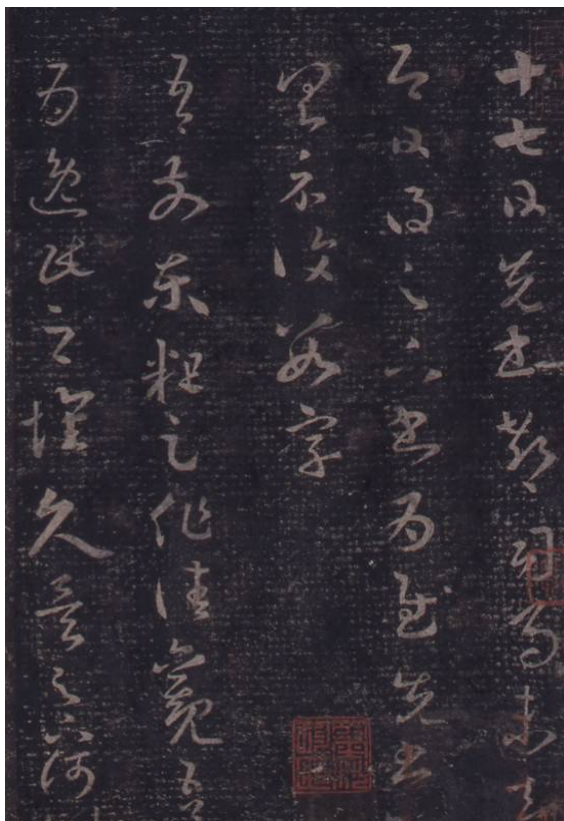 十七日先書郗司馬未去
即日得足下書為慰先書
以具示復數字
吾前東粗足作佳觀吾
為逸民之懷久矣足下何